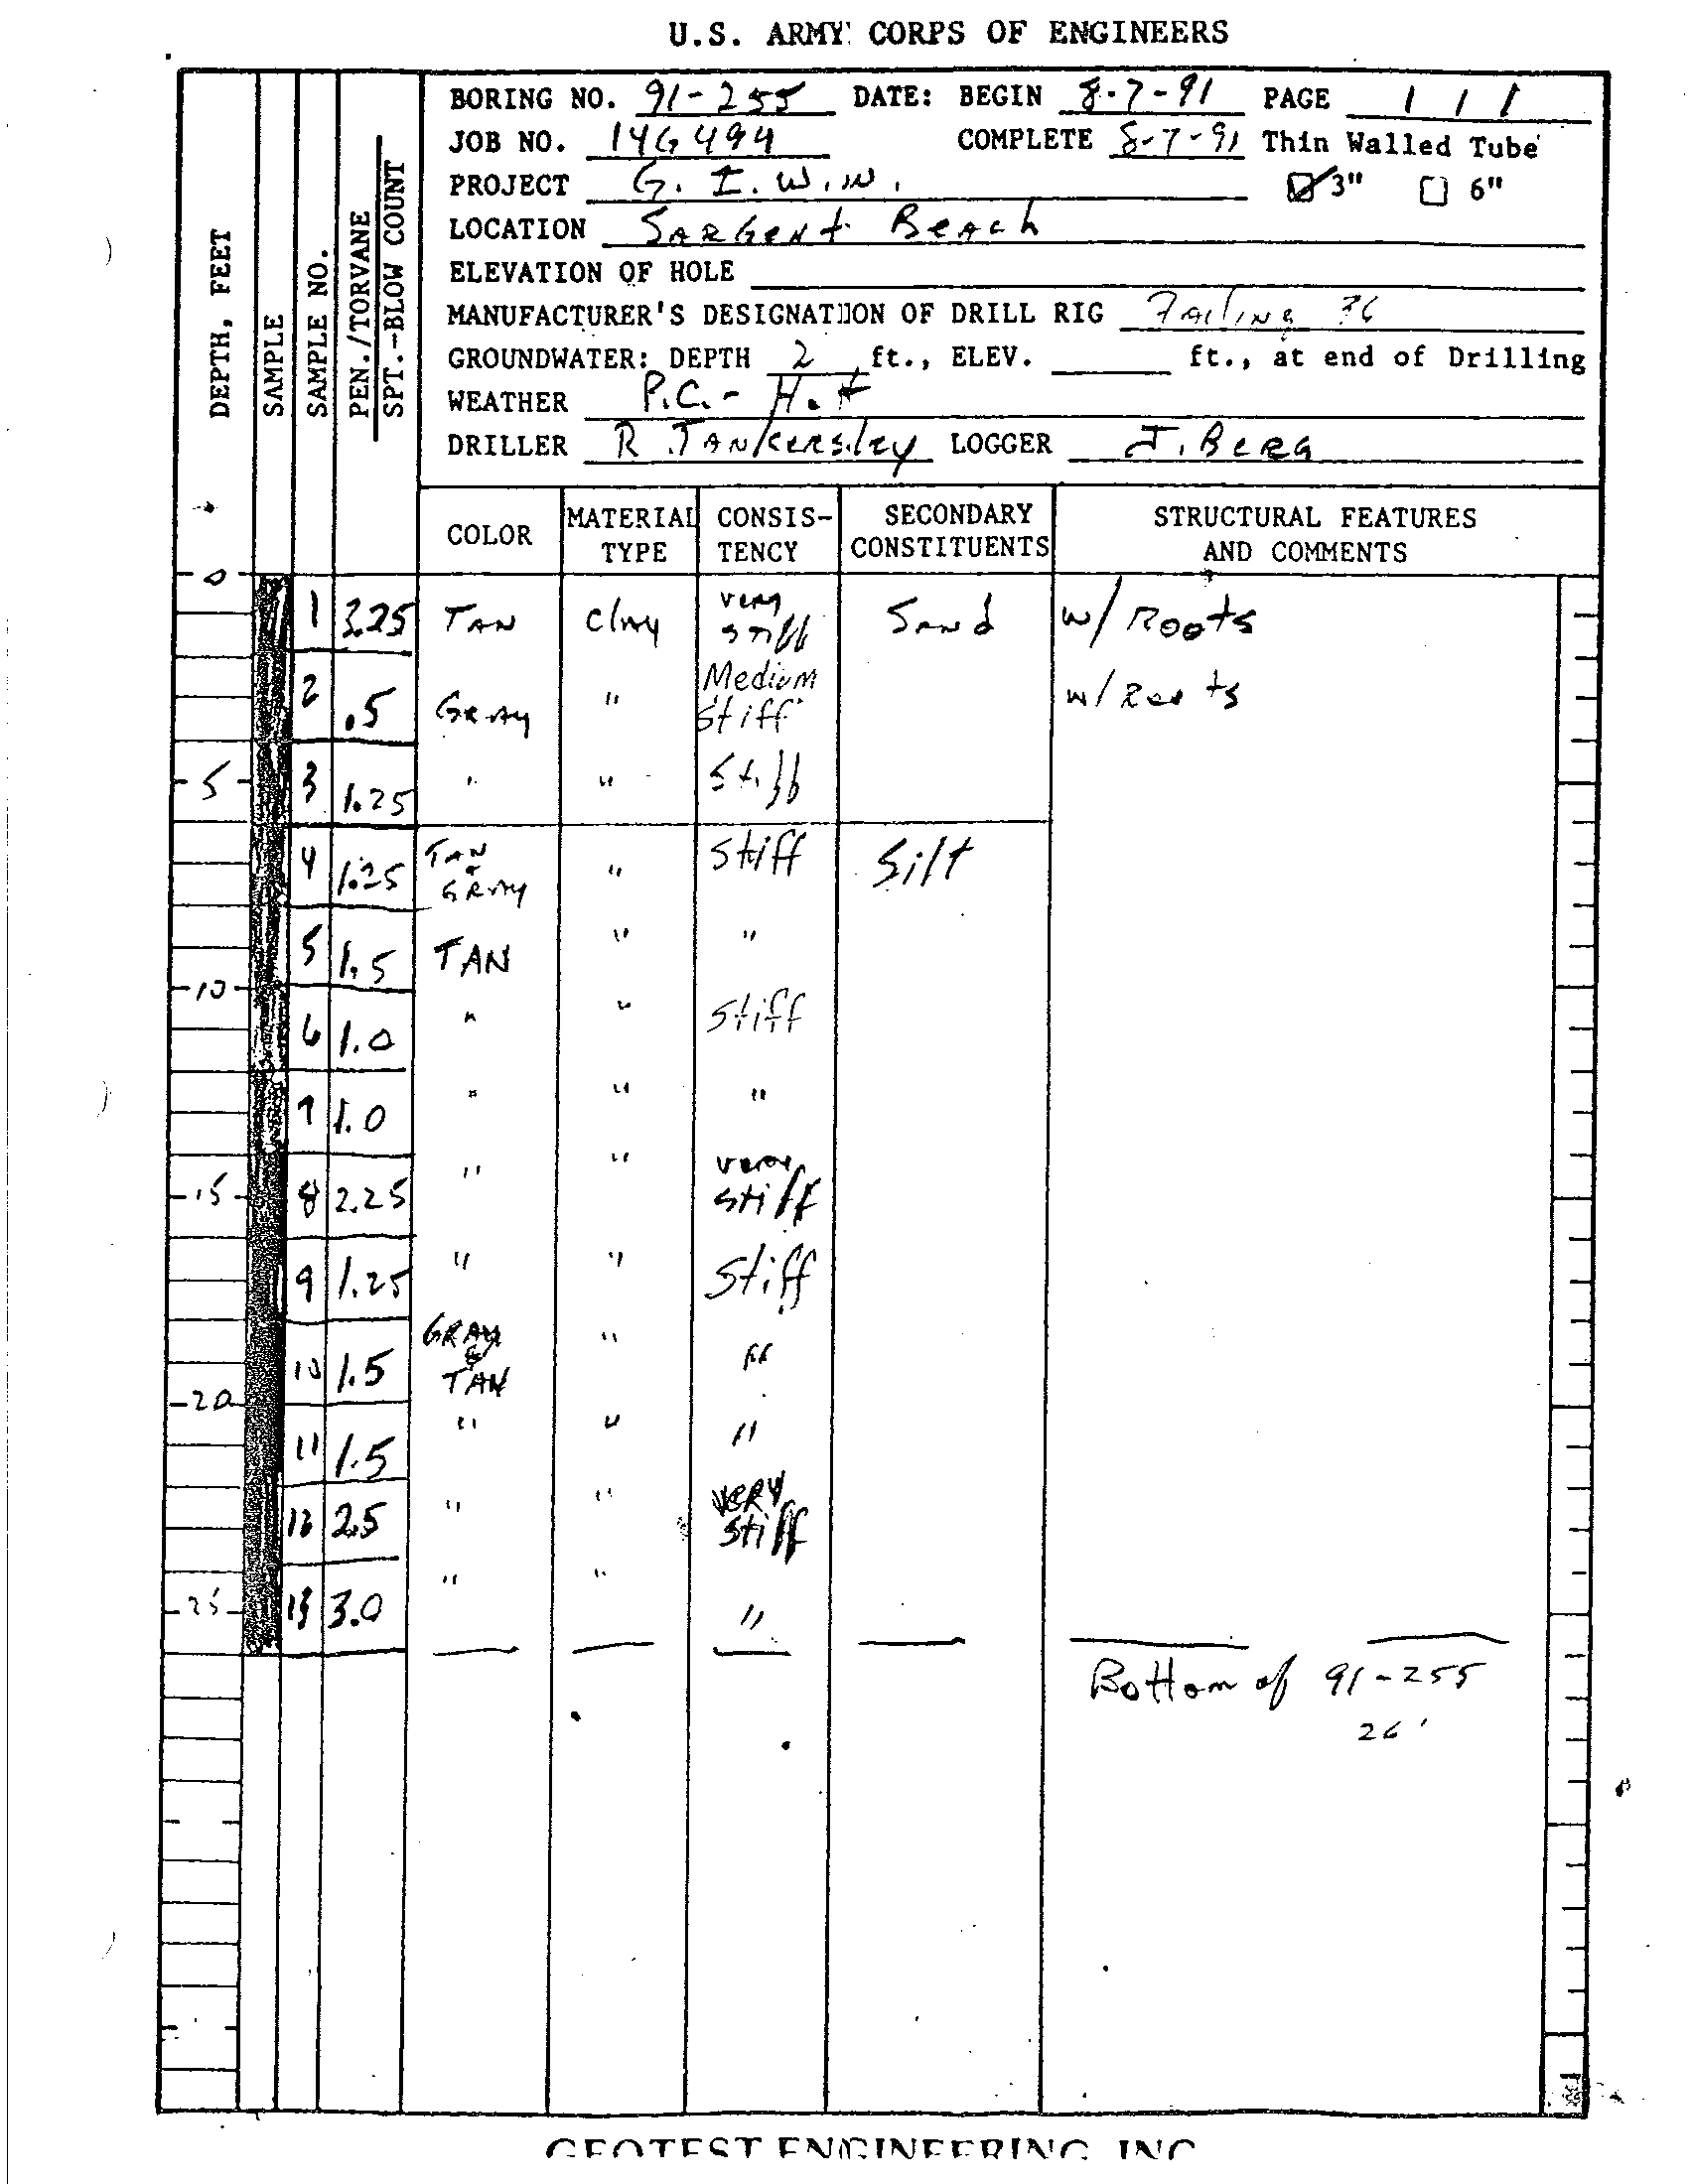 U.S. ARMY CORPS OF ENGINEERS
BORING NO. 91-255 DATE: BEGIN 8-7-91 PAGE 1 / 1
JOB NO. 14G494 COMPLETE 8-7-91 Thin Walled Tube
PROJECT G.I.W.W. 3" 6"
LOCATION SARGENT BEACH
ELEVATION OF HOLE
MANUFACTURER'S DESIGNATION OF DRILL RIG Failing 36
GROUNDWATER: DEPTH 2 ft., ELEV. ft., at end of Drilling
WEATHER P.C.- Hot
DRILLER R. TANKERSLEY LOGGER J. BERG
DEPTH, FEET
SAMPLE
SAMPLE NO.
PEN./TORVANE
SPT.-BLOW COUNT
COLOR MATERIAL TYPE CONSIS-TENCY SECONDARY CONSTITUENTS STRUCTURAL FEATURES AND COMMENTS
0
1 3.25 TAN Clay very stiff Sand w/ Roots
2 .5 GRAY " Medium Stiff w/ Roots
5 3 1.25 " " Stiff
4 1.25 TAN & GRAY " Stiff Silt
5 1.5 TAN " "
10
6 1.0 " " Stiff
7 1.0 " " "
15 8 2.25 " " very stiff
9 1.25 " " Stiff
10 1.5 GRAY & TAN " "
20
11 1.5 " " "
12 2.5 " " VERY Stiff
25 13 3.0 " " "
Bottom of 91-255
26'
GEOTEST ENGINEERING, INC